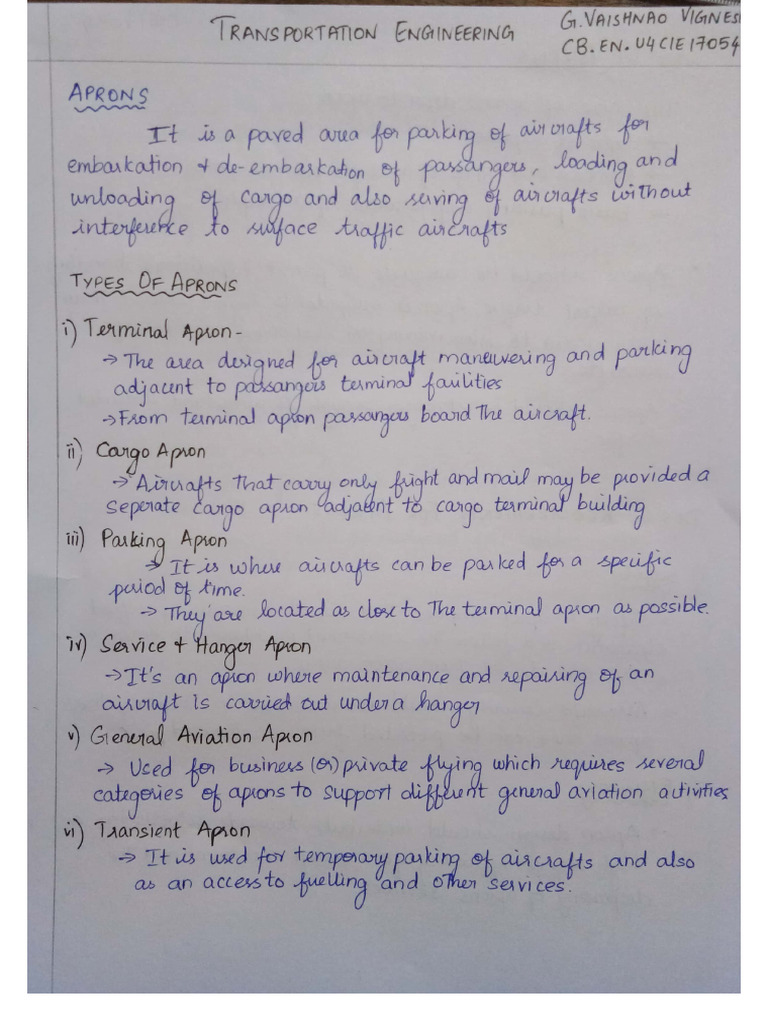 TRANSPORTATION ENGINEERING
G. VAISHNAO VIGNES
CB.EN.U4CIE17054
APRONS
It is a paved area for parking of aircrafts for
embarkation & de-embarkation of passangers, loading and
unloading of cargo and also serving of aircrafts without
interference to surface traffic aircrafts
TYPES OF APRONS
i) Terminal Apron -
→ The area designed for aircraft maneuvering and parking
adjacent to passangers terminal failities
→ From terminal apron passangers board The aircraft.
ii) Cargo Apron
→ Aircrafts that carry only fright and mail may be provided a
seperate cargo apron adjacent to cargo terminal building
iii) Parking Apron
→ It is where aircrafts can be parked for a specific
period of time.
→ They are located as close to The terminal apron as possible.
iv) Service & Hanger Apron
→ It's an apron where maintenance and repairing of an
aircraft is carried out under a hanger
v) General Aviation Apron
→ Used for business (or) private flying which requires several
categories of aprons to support different general aviation activities
vi) Transient Apron
→ It is used for temporary parking of aircrafts and also
as an access to fuelling and other services.